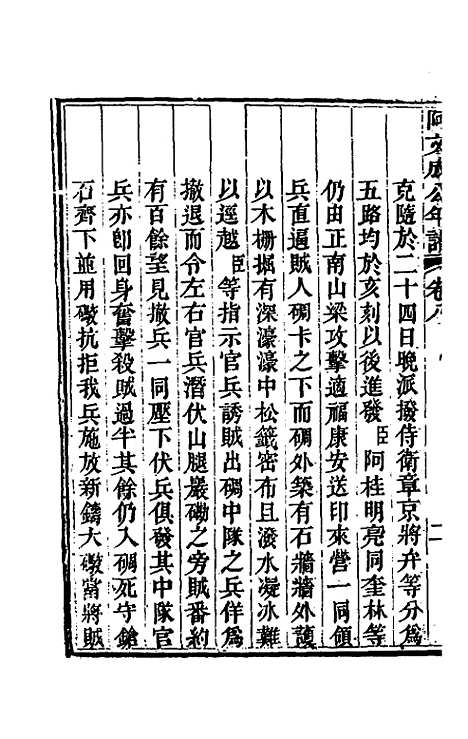 阿文成公年譜 卷八 二
克隨於二十四日晚派撥侍衛章京將弁等分爲
五路均於亥刻以後進發臣阿桂明亮同奎林等
仍由正南山梁攻擊適福康安送印來營一同領
兵直逼賊人碉卡之下而碉外築有石牆牆外護
以木栅掘有深濠濠中松籖密布且潑水凝冰難
以逕越臣等指示官兵誘賊出碉中隊之兵佯爲
撤退而令左右官兵潛伏山腿巖磡之旁賊番約
有百餘望見撤兵一同壓下伏兵俱發其中隊官
兵亦卽回身奮擊殺賊過半其餘仍入碉死守鎗
石齊下並用礮抗拒我兵施放新鑄大礮當將賊